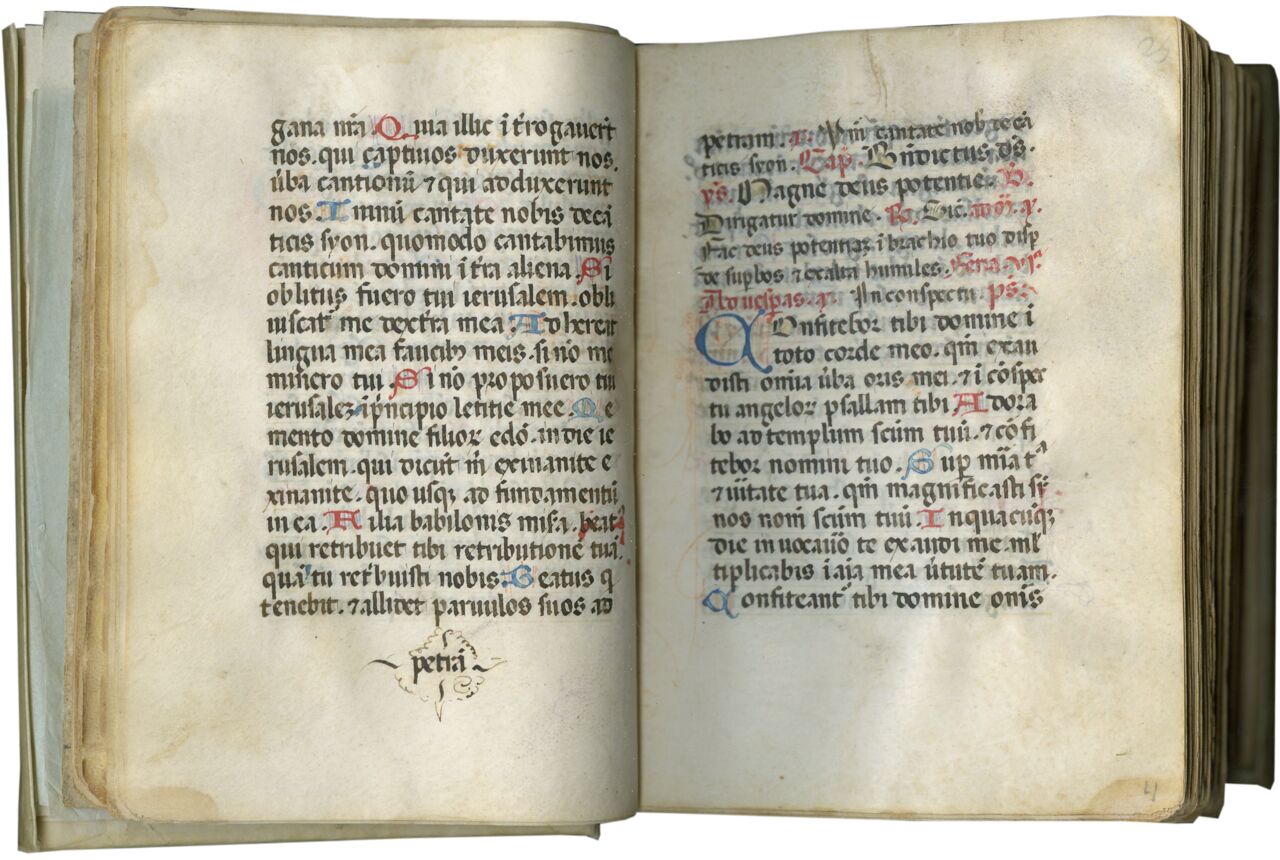 gana nr̄a. Quia illic ī t̄rogauer̄t
nos. qui captiuos duxerunt nos.
ūba cantionū ⁊ qui adduxerunt
nos. Imnū cantate nobis de cā
ticis syon. quomodo cantabimus
canticum domini ī t̄ra aliena. Si
oblitus fuero tui ierusalem. obli
uiscat᷑ me dext̄ra mea. Adhereat
lingua mea faucibꝫ meis. si nō me
mīnero tui. Si nō proposuero tui
ierusalez. ī pͥncipio letitie mee. Me
mento domine filioꝝ edō. in die ie
rusalem. qui dicūt īn exinanite e
xinanite. quo usqꝫ ad fundamentū
in ea. Filia babilonis mis̄a. beatꝰ
qui retribuet tibi retributionē tuā.
quā tu ret̄buisti nobis. Beatus q
tenebit. ⁊ allidet paruulos suos ad
petrā
petram. a. Ymū cantate nob̄ de cā
ticis syon. Cap̄. Bn̄dictus. ds̄.
ps̄. Magne deus potentie. V̄.
Dirigatur domine. R̄. Sic. ad m̄. a.
Fac deus potentiaꝫ ī brachio tuo disp̄
de suꝑbos ⁊ exalta humiles. Feria. vi.
Ad uesꝑas. a. In conspectu. ps̄.
Confitebor tibi domine ī
toto corde meo. qm̄ exau
disti omīa ūba oris mei. ⁊ ī cōspec
tu angeloꝝ psallam tibi. Adora
bo ad templum scūm tuū. ⁊ cōfi
tebor nomini tuo. Suꝑ mīa tͣ
⁊ ūitate tua. qm̄ magnificasti sꝑ
nos nom̄ scūm tuū. In quacūqꝫ
die inuocauō te exaudi me. ml̄
tiplicabis ī aīa mea ūtutē tuam.
Confiteant᷑ tibi domine om̄s
4